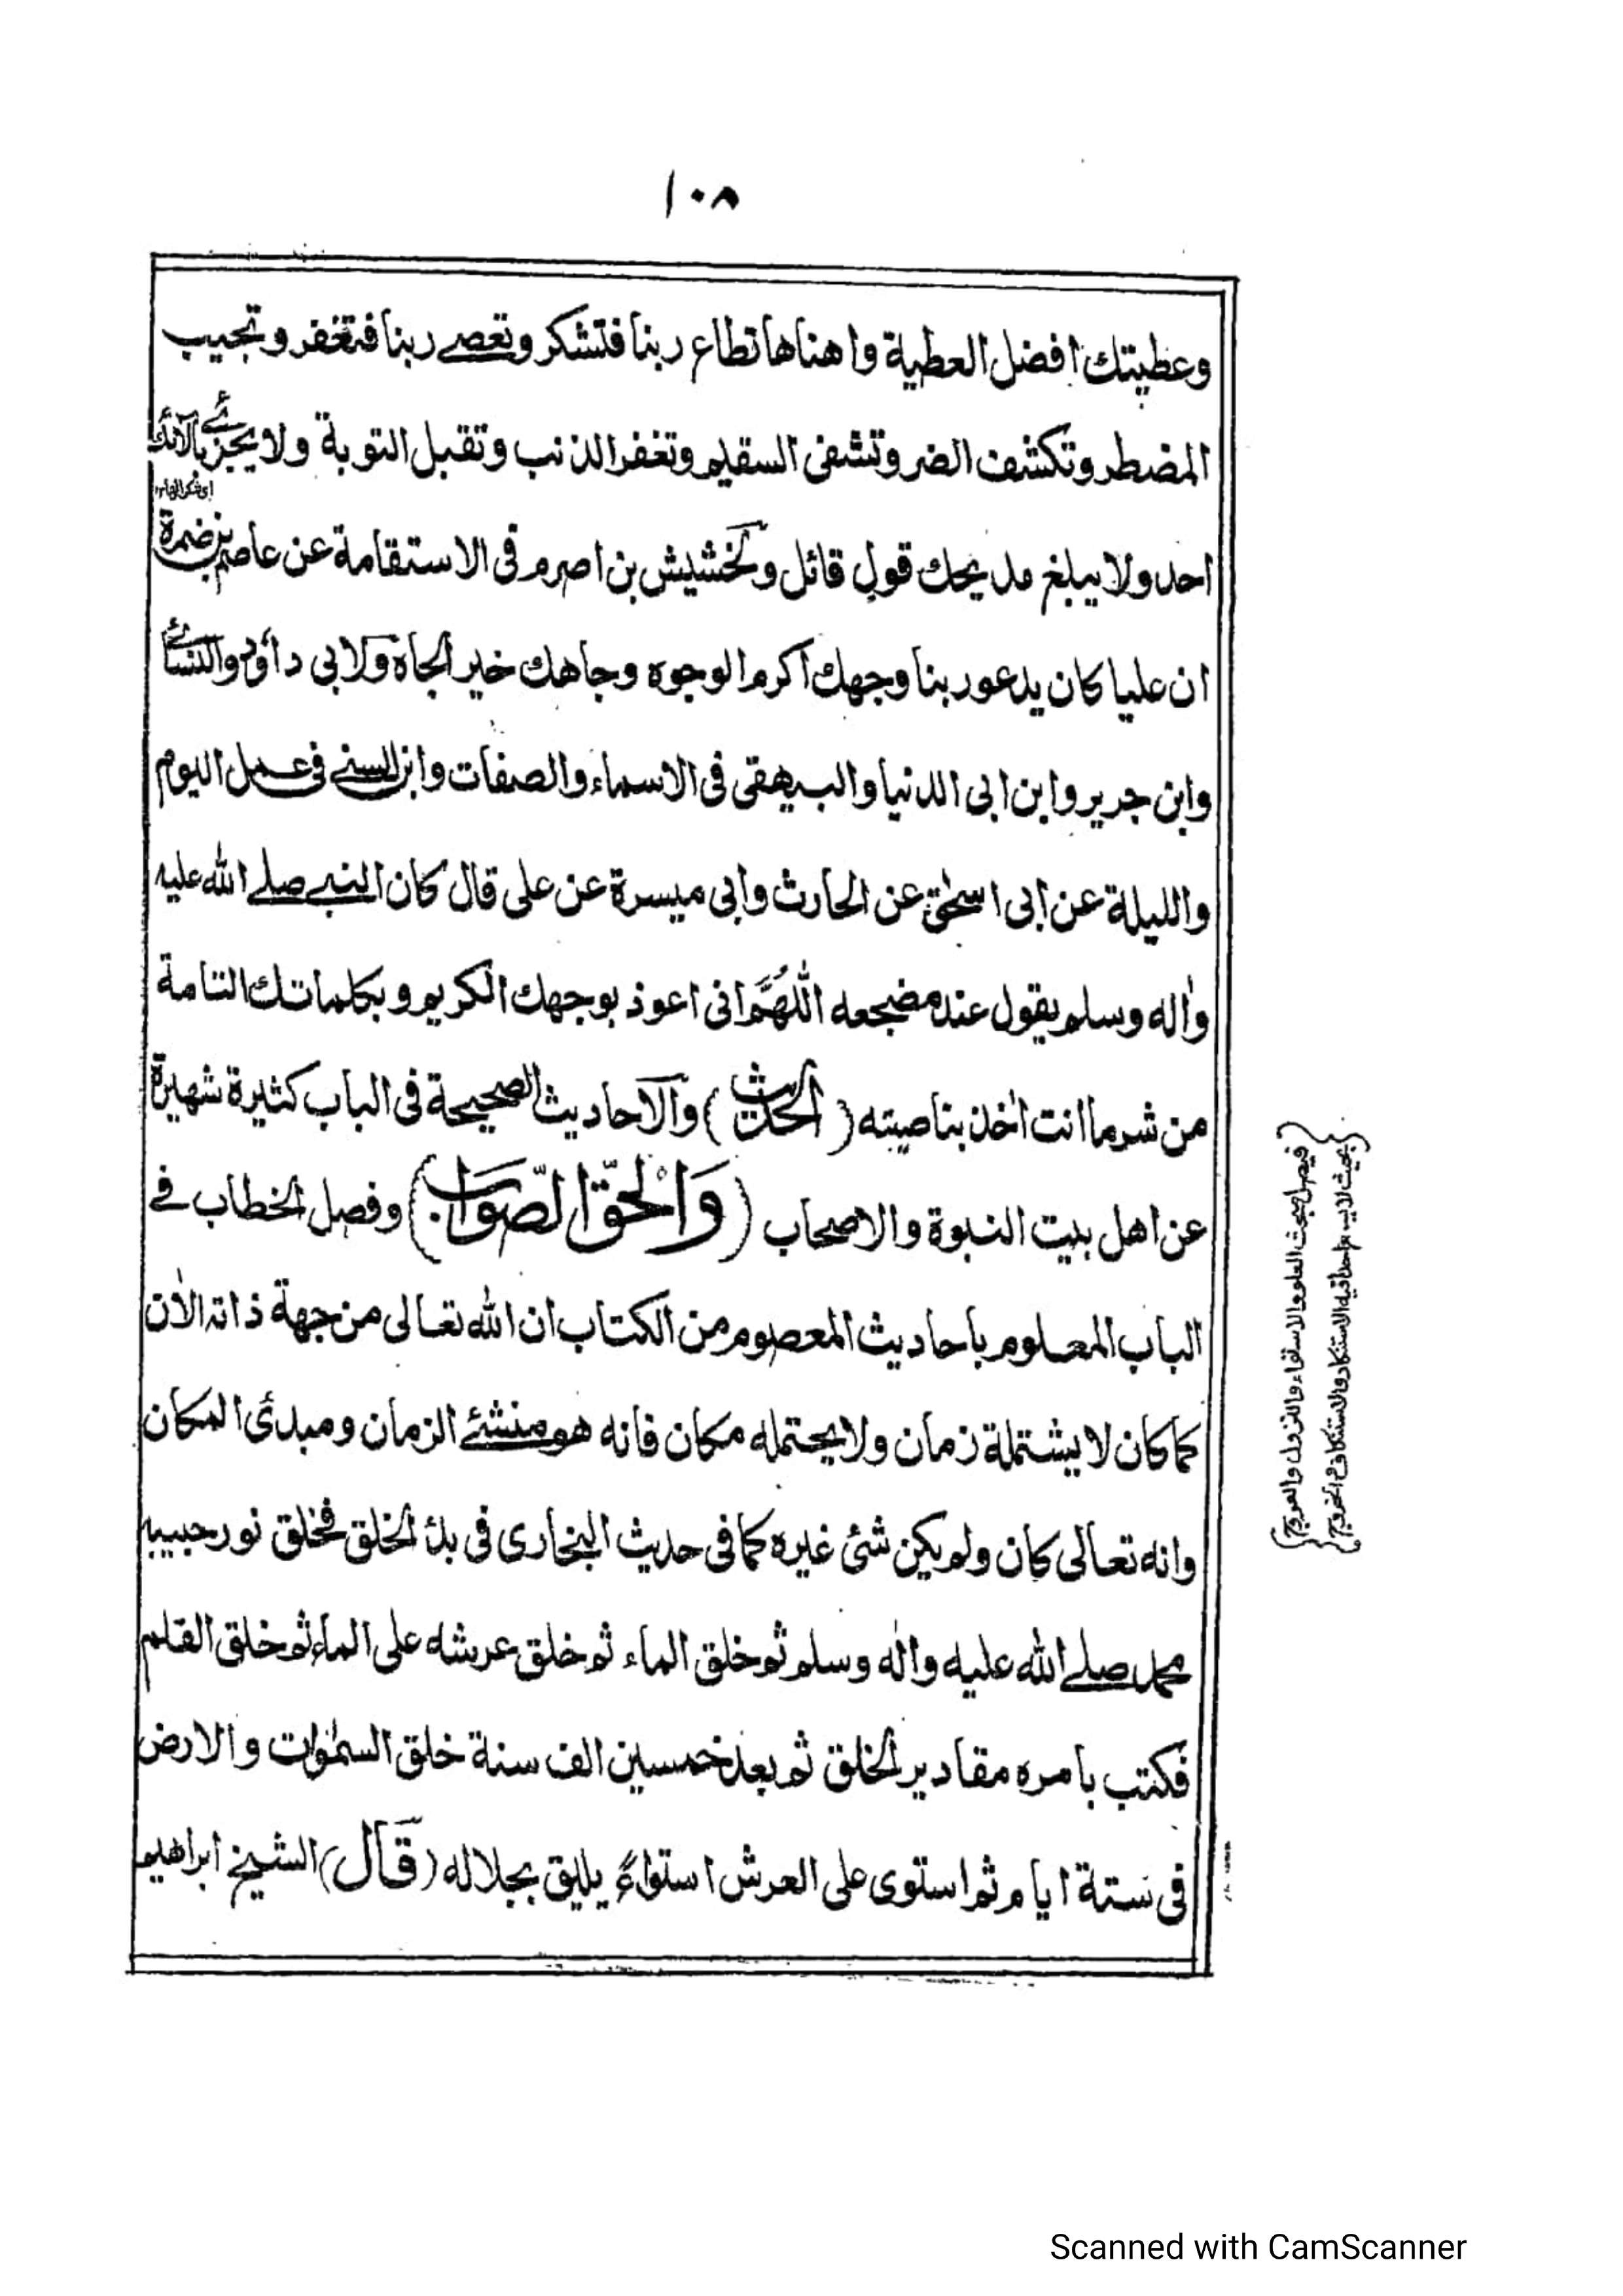 ١٠٨
وعطيتك افضل العطية واهناها تطاع ربنا فتشكر وتعصے ربنا فتغفر وتجيب
المضطر وتكشف الضر وتشفى السقيم وتغفر الذنب وتقبل التوبة ولا يجزئے بآلائك
احد ولا يبلغ مديحك قول قائل ولخشيش بن اصرم فى الاستقامة عن عاصم بن ضمرة
ان عليا كان يدعو ربنا وجهك اكرم الوجوه وجاهك خير الجاه ولابى داؤد والنسائے
وابن جرير وابن ابى الدنيا والبيهقى فى الاسماء والصفات وابن السنے فى عمل اليوم
والليلة عن ابى اسحٰق عن الحارث وابى ميسرة عن على قال كان النبے صلے الله عليه
واٰله وسلم يقول عند مضجعه اللهُمَّ انى اعوذ بوجهك الكريم وبكلماتك التامة
من شر ما انت اٰخذ بناصيته (الحديث) والاحاديث الصحيحة فى الباب كثيرة شهيرة
عن اهل بيت النبوة والاصحاب (وَالْحَقُّ الصَّوَاب) وفصل الخطاب فے
الباب المعلوم باحاديث المعصوم من الكتاب ان الله تعالى من جهة ذاته الاٰن
كما كان لا يشتمله زمان ولا يحتمله مكان فانه هو منشئے الزمان ومبدئ المكان
وانه تعالى كان ولم يكن شئ غيره كما فى حديث البخارى فى بدء الخلق فخلق نور حبيبه
محمد صلے الله عليه واٰله وسلم ثم خلق الماء ثم خلق عرشه على الماء ثم خلق القلم
فكتب بامره مقادير الخلق ثم بعد خمسين الف سنة خلق السمٰوات والارض
فى ستة ايام ثم استوى على العرش استواءً يليق بجلاله (قَالَ) الشيخ ابراهيم
فيصل مبحث العلو والاستواء والنزول والعروج
بحيث لا يسع احدا فيه الاستنكار والاستنكاف والخروج
Scanned with CamScanner